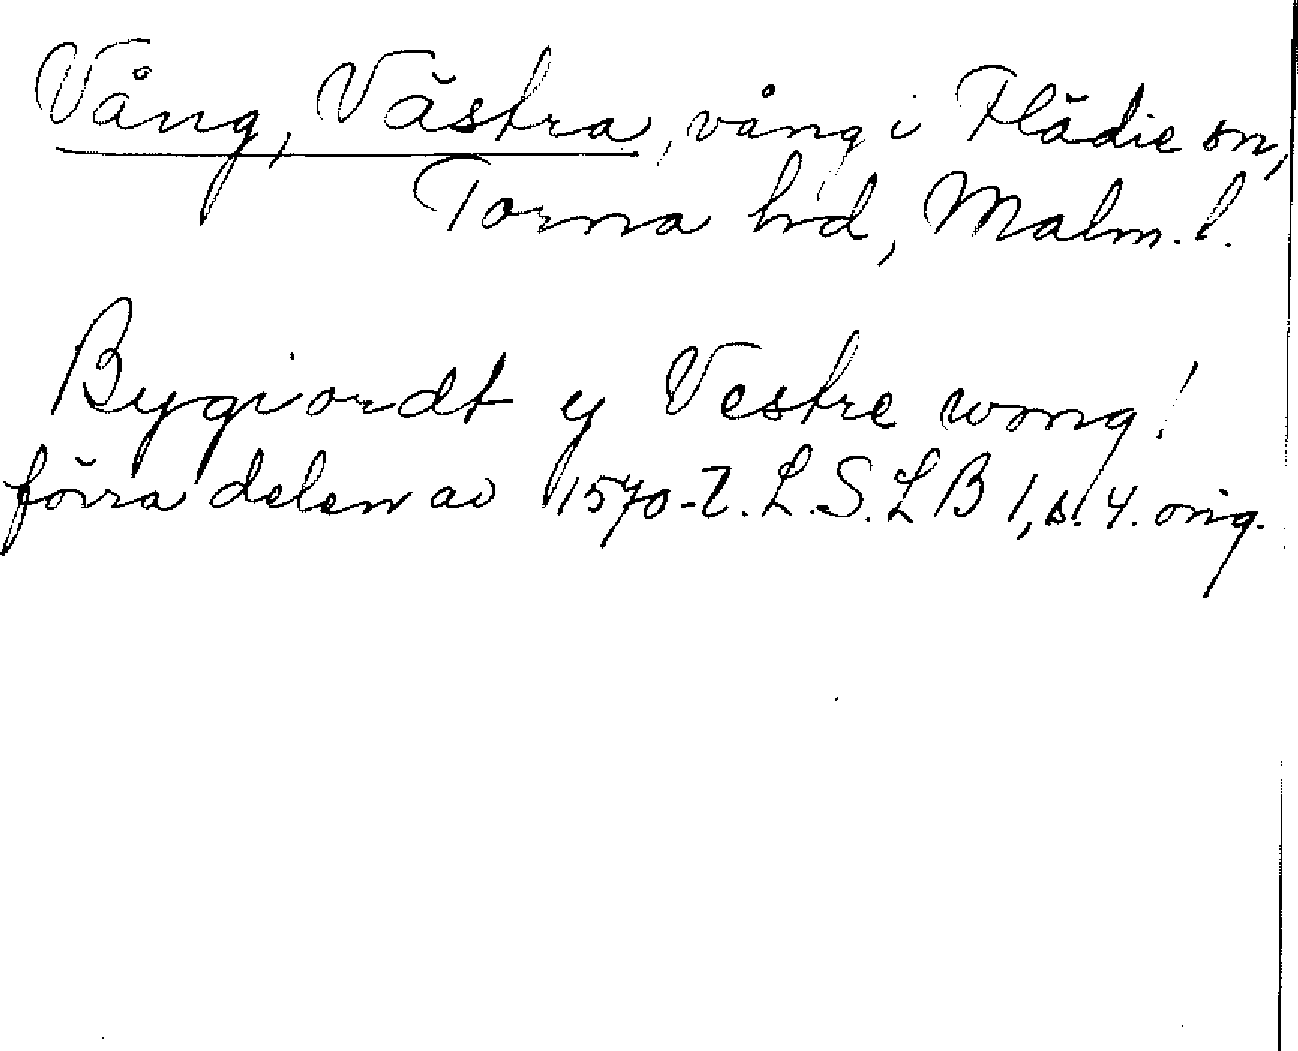 Vång, Västra, vång i Flädie sn,
Torna hd, Malm. l.
Bygiordt y Vestre wong!
förra delen av 1570-t. L.S.LB 1, s. 4. orig.